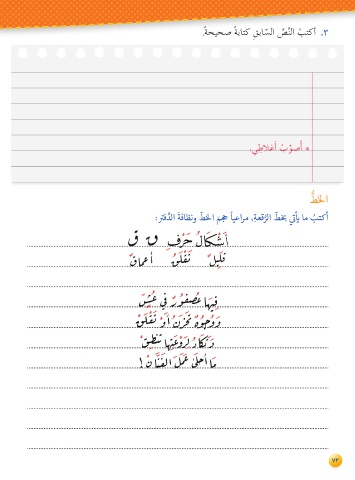 ٣. أكتبُ النَّصَّ السّابقَ كتابةً صحيحةً.
* أُصوّبُ أغلاطي.
الخطُّ
أكتبُ ما يأتي بخطّ الرّقعةِ، مراعياً حجمَ الخطّ ونظافةَ الدّفترِ:
أَشْكَالُ حَرْفِ ق ق
قَلِيلٌ تَقْلَقُ أعماقٌ
فِيهَا عُصْفُورٌ فِي عُشِّ
وَوُجُوهٌ تَحْزَنُ أَوْ تَقْلَقْ
وَتَكَادُ لِرَوْعَتِهَا تَنْطِقْ
مَا أَحلَى عَمَلَ الفَنَّانْ!
٧٣